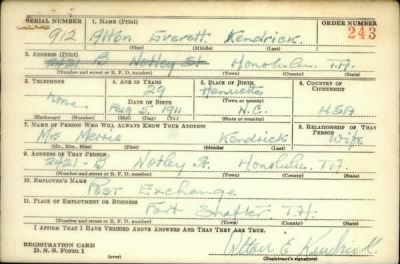 SERIAL NUMBER 1. NAME (Print) ORDER NUMBER
912 Alton Everett Kendrick 243
(First) (Middle) (Last)
2. ADDRESS (Print)
2421 B Notley St Honolulu T.H.
(Number and street or R. F. D. number) (Town) (County) (State)
3. TELEPHONE 4. AGE IN YEARS 5. PLACE OF BIRTH 6. COUNTRY OF CITIZENSHIP
29 Henrietta
none DATE OF BIRTH (Town or county)
Aug 5 1911 N.C. USA
(Exchange) (Number) (Mo.) (Day) (Yr.) (State or country)
7. NAME OF PERSON WHO WILL ALWAYS KNOW YOUR ADDRESS 8. RELATIONSHIP OF THAT PERSON
Mrs Kendrick Wife
(Mr., Mrs., Miss) (First) (Middle) (Last)
9. ADDRESS OF THAT PERSON
2421-B Notley St. Honolulu T.H.
(Number and street or R. F. D. number) (Town) (County) (State)
10. EMPLOYER'S NAME
Post Exchange
11. PLACE OF EMPLOYMENT OR BUSINESS
Fort Shafter T.H.
(Number and street or R. F. D. number) (Town) (County) (State)
I AFFIRM THAT I HAVE VERIFIED ABOVE ANSWERS AND THAT THEY ARE TRUE.
REGISTRATION CARD
D. S. S. Form 1 (over) Alton E Kendrick
(Registrant's signature)